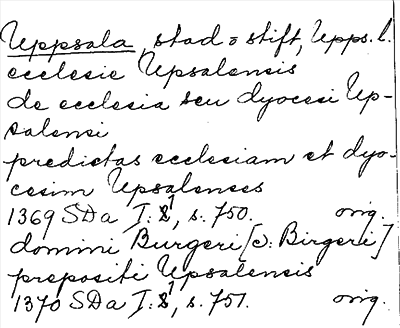 Uppsala, stad o stift, Upps. l.
ecclesie Upsalensis
de ecclesia seu dyocesi Up-
salensi
predictas ecclesiam et dyo-
cesim Upsalenses
1369 SDa I: 8¹, s. 750. orig.
domini Burgeri [ɔ: Birgeri]
prepositi Upsalensis
1370 SDa I: 8¹, s. 751. orig.